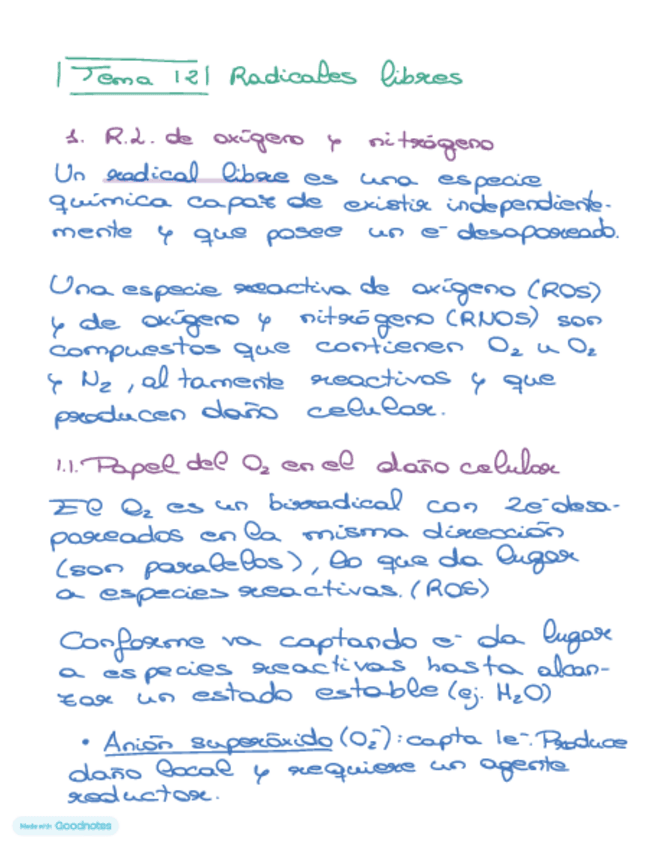 Tema 12 Radicales libres
1. R.L. de oxígeno y nitrógeno
Un radical libre es una especie
química capaz de existir independiente-
mente y que posee un e⁻ desapareado.
Una especie reactiva de oxígeno (ROS)
y de oxígeno y nitrógeno (RNOS) son
compuestos que contienen O₂ u O₂
y N₂, altamente reactivos y que
producen daño celular.
1.1. Papel del O₂ en el daño celular
El O₂ es un birradical con 2e⁻ desa-
pareados en la misma dirección
(son paralelos), lo que da lugar
a especies reactivas. (ROS)
Conforme va captando e⁻ da lugar
a especies reactivas hasta alcan-
zar un estado estable (ej. H₂O)
• Anión superóxido (O₂⁻): capta 1e⁻. Produce
daño local y requiere un agente
reductor.
Made with Goodnotes